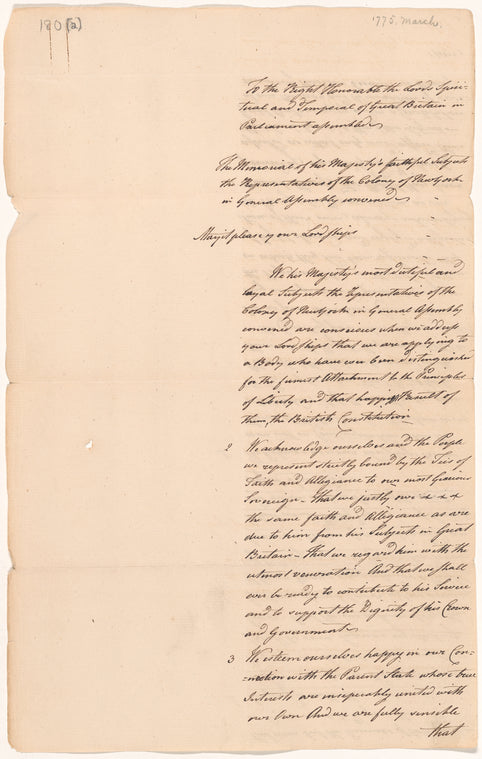 180 (a)
1775. March.
To the Right Honorable the Lords Spiri-
tual and Temporal of Great Britain in
Parliament assembled
The Memorial of his Majesty's faithful Subjects
the Representatives of the Colony of New York
in General Assembly convened
May it please your Lordships
We his Majesty's most dutiful and
Loyal Subjects the representatives of the
Colony of New York in General Assembly
convened are conscious when we address
your Lordships that we are applying to
a Body who have ever been distinguished
for the firmest Attachment to the Principles
of Liberty and that happy Result of
them, the British Constitution
2 We acknowledge ourselves and the People
we represent strictly bound by the Ties of
Faith and Allegiance to our most Gracious
Sovereign - That we justly owe x x x
the same faith and Allegiance as are
due to him from his Subjects in Great
Britain - That we regard him with the
utmost veneration And that we shall
ever be ready to contribute to his Service
and to support the Dignity of his Crown
and Government
3 We esteem ourselves happy in our Con-
-nection with the Parent State whose true
Interests are inseperably united with
our Own And we are fully sensible
that